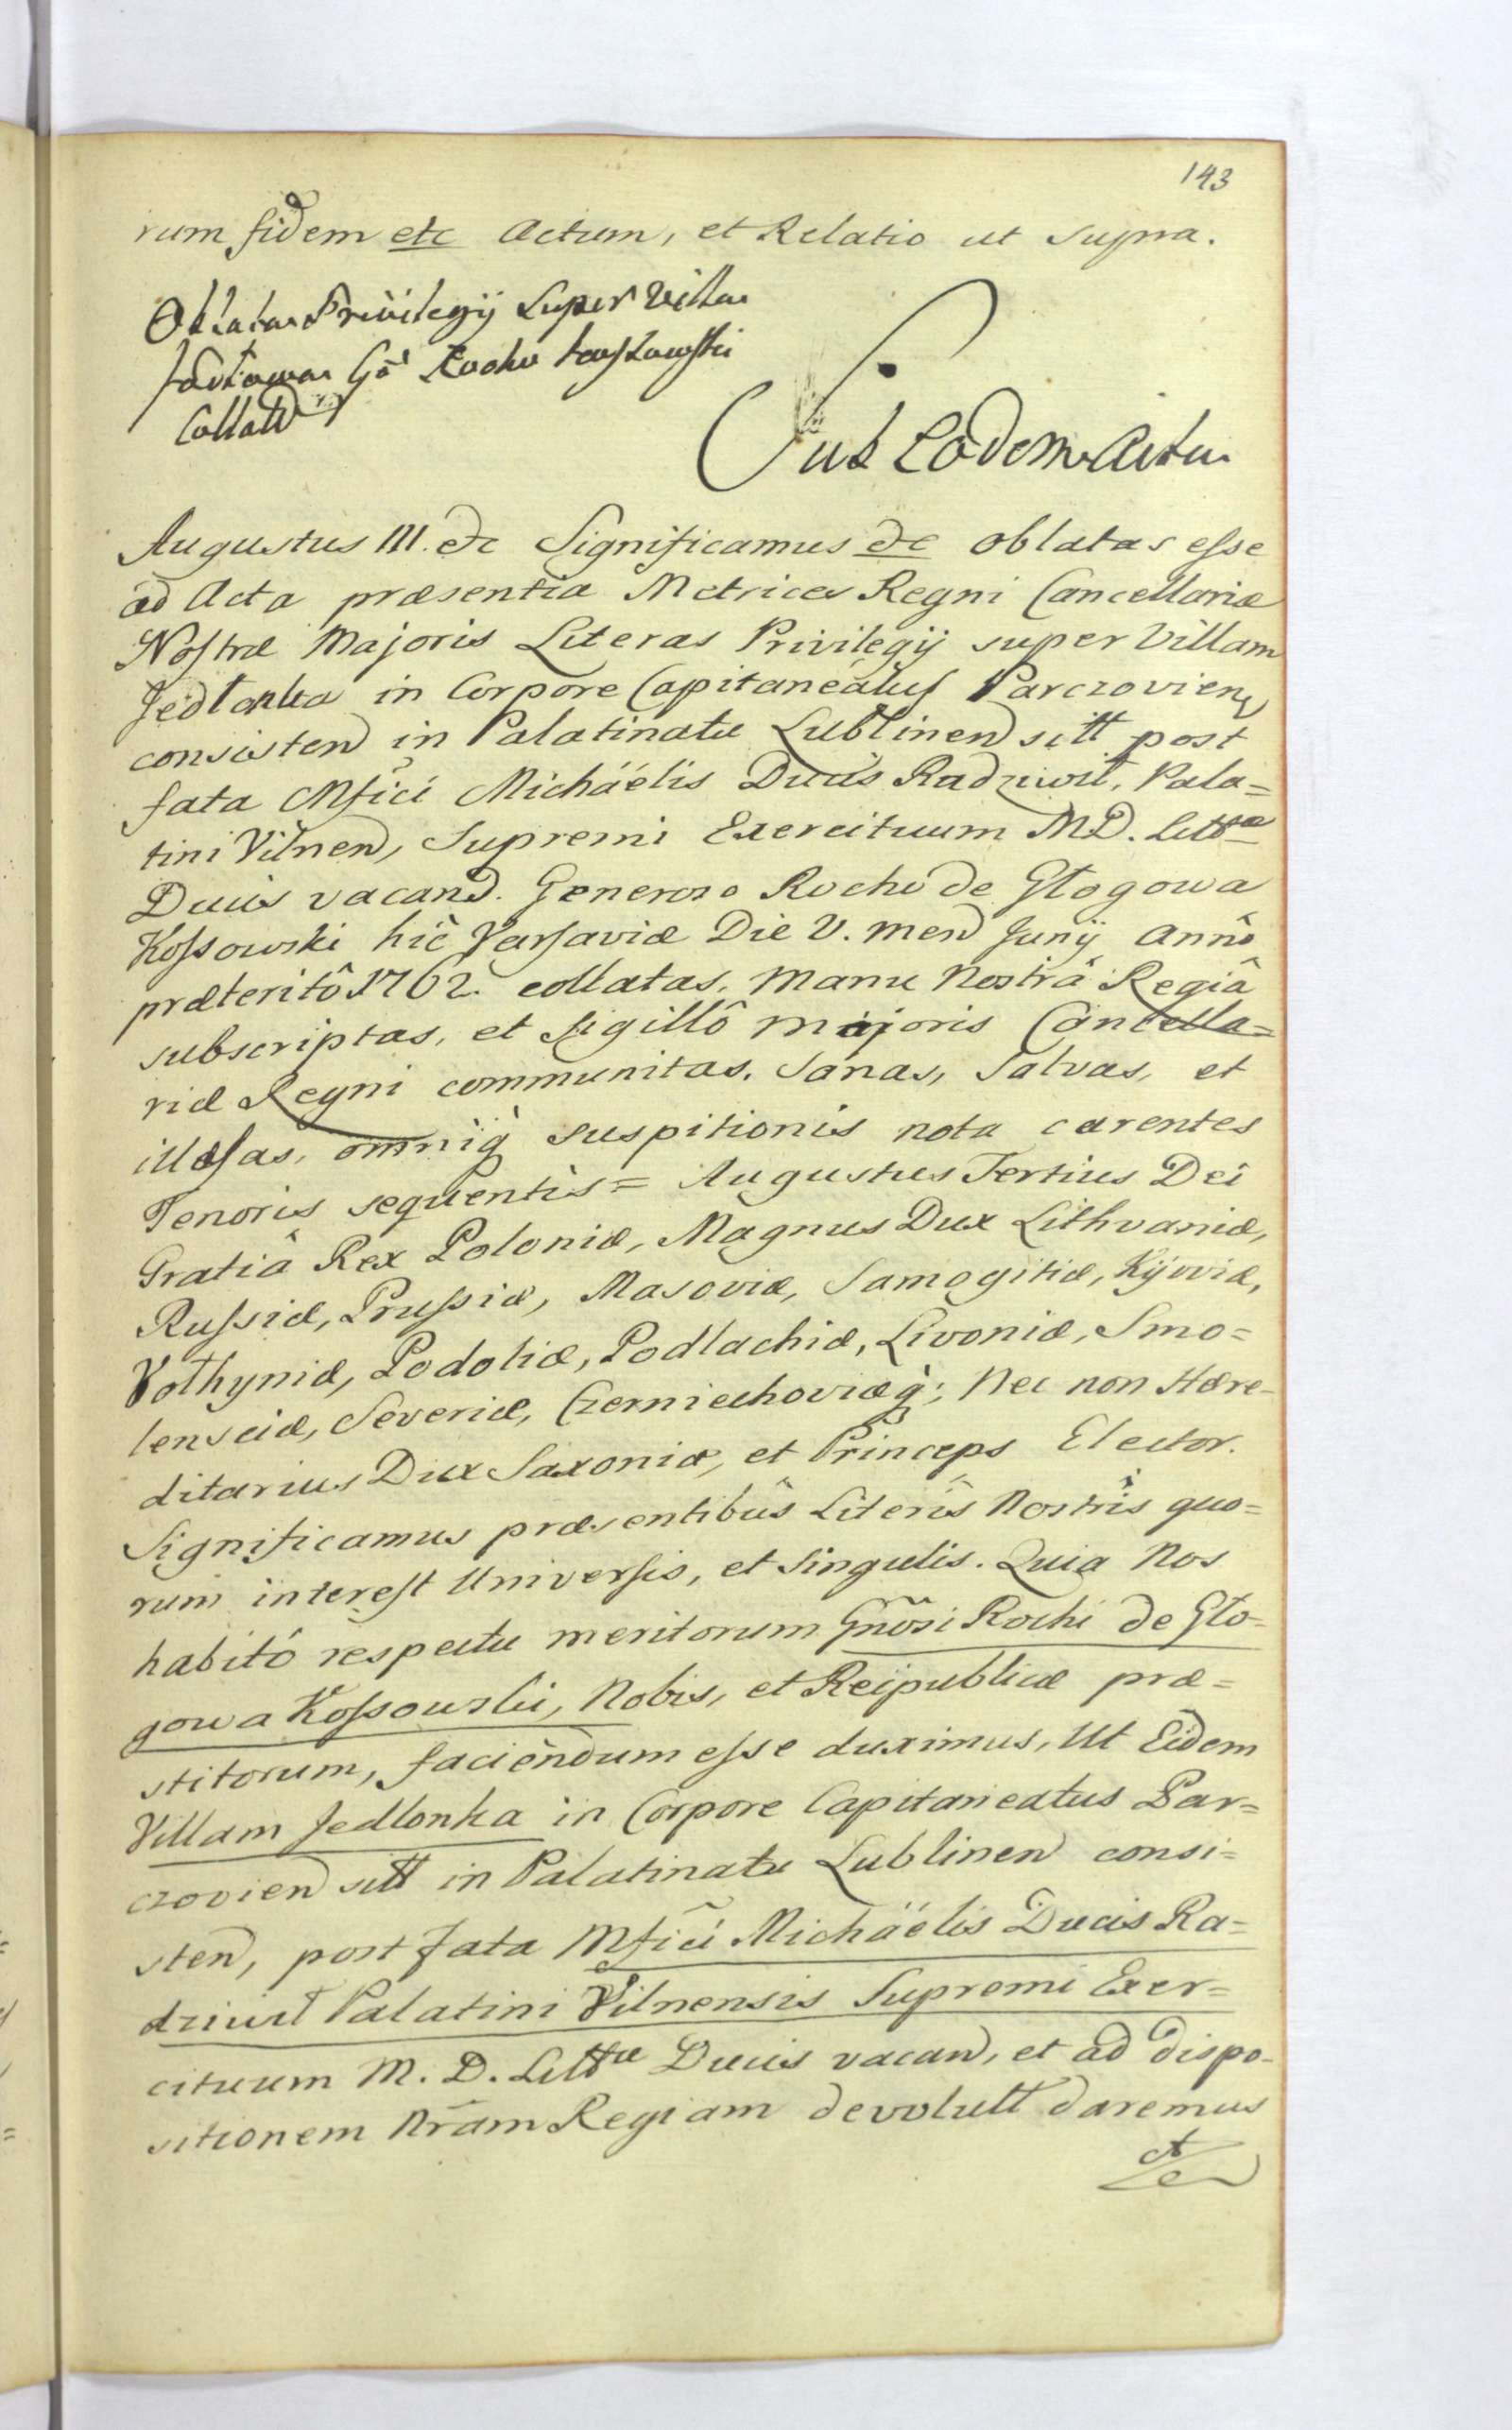 143
rum fidem etc Actum, et Relatio ut supra.
Oblata Privilegij super Villam
Gō Rocho Kossowski
Collatū
Sub Eodem Actu
Augustus III. etc Significamus etc oblatas esse
ad Acta præsentia Metrices Regni Cancellariæ
Nostræ Majoris Literas Privilegij super Villam
Jedlonka in Corpore Capitaneatus Parczovien
consisten in Palatinatu Lublinen sitt post
fata Mfici Michäelis Ducis Radziwił, Pala=
tini Vilnen, Supremi Exercituum M.D. Littæ
Ducis vacand. Generoso Rocho de Głogowa
Kossowski hic Varsaviæ Die V. men Junij Annô
præteritô 1762. collatas, Manu Nostrâ Regiâ
subscriptas, et sigillô majoris Cancella=
riæ Regni communitas. Sanas, Salvas, et
illæsas, omniq̀ suspitionis nota carentes
Tenoris sequentis = Augustus Tertius Dei
Gratiâ Rex Poloniæ, Magnus Dux Lithvaniæ,
Russiæ, Prussiæ, Masoviæ, Samogitiæ, Kijoviæ,
Volhyniæ, Podoliæ, Podlachiæ, Livoniæ, Smo=
lensciæ, Severiæ, Czerniechoviæq̀; Nec non Hære-
ditarius Dux Saxoniæ, et Princeps Elector.
Significamus præsentibûs Literîs Nostrîs quo=
rum interest Universis, et Singulis. Quia Nos
habitô respectu meritorum Gnosi Rochi de Gło-
gowa Kossowski, Nobis, et Reipublicæ præ=
stitorum, faciendum esse duximus, Ut Eidem
Villam Jedlonka in Corpore Capitaneatus Par=
czovien sitt in Palatinatu Lublinen consi=
sten, post fata Mfici Michäelis Ducis Ra=
dziwił Palatini Vilnensis Supremi Exer=
cituum M. D. Littæ Ducis vacan, et ad dispo-
sitionem Nram Regiam devolutt daremus
et